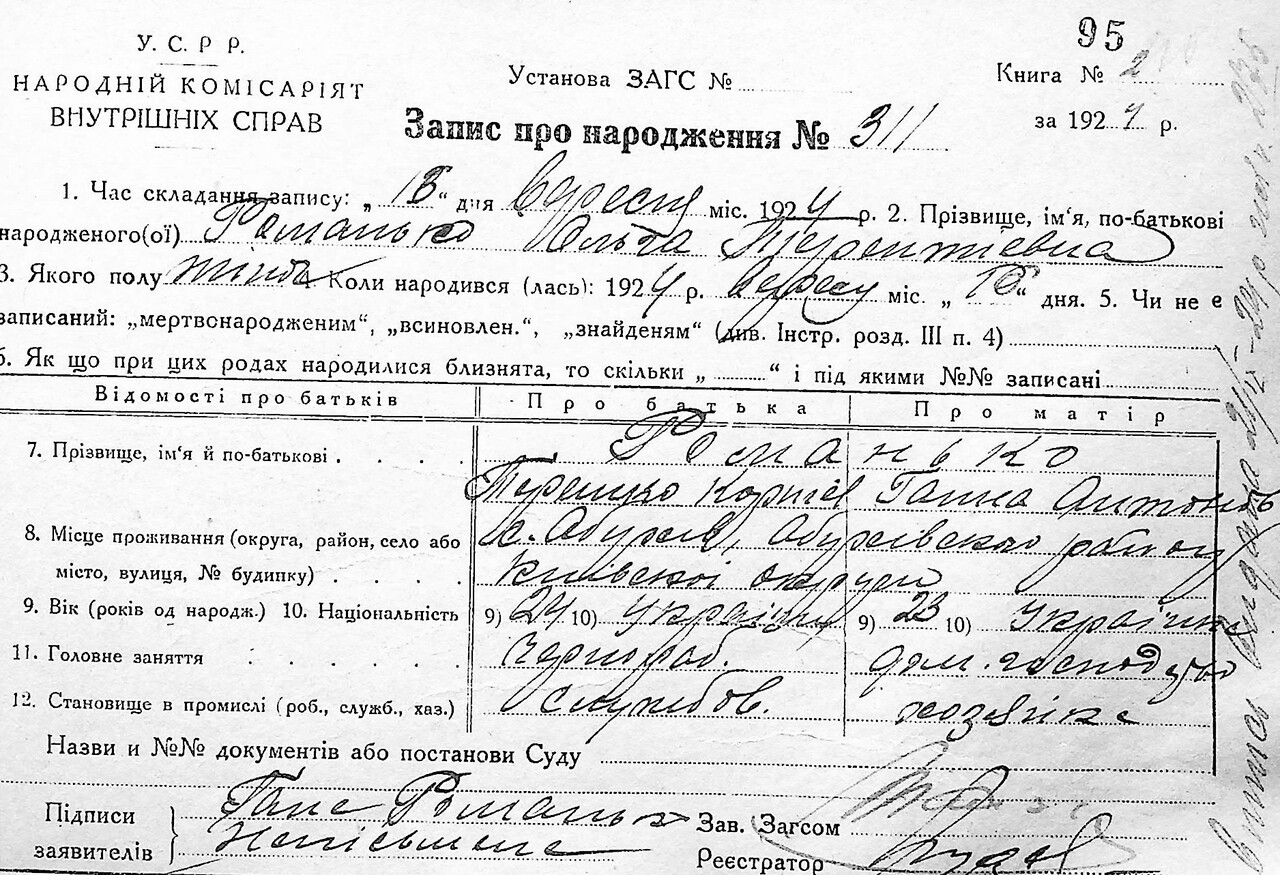 95
У. С. Р Р.
НАРОДНІЙ КОМІСАРІЯТ
ВНУТРІШНІХ СПРАВ
Установа ЗАГС №
Книга № 2
за 1924 р.
Запис про народження № 311
1. Час складання запису: „ 18 “ дня вересня міс. 1924 р. 2. Прізвище, ім'я, по-батькові
народженого(ої) Романько Ольга Терентіевна
3. Якого полу жіноч Коли народився (лась): 1924 р. вересн міс. „ “ дня. 5. Чи не є
записаний: „мертвонародженим“, „всиновлен.“, „знайденям“ (див. Інстр. розд. III п. 4)
6. Як що при цих родах народилися близнята, то скільки „ “ і під якими №№ записані
Відомості про батьків Про батька Про матір
7. Прізвище, ім'я й по-батькові . . . . Романько
Терешко Корнієв Ганна Антонов
8. Місце проживання (округа, район, село або м. Обухів, Обухівського району
місто, вулиця, № будипку) . . . . Київскої округи
9. Вік (років од народж.) 10. Національність 9) 24 10) Українц 9) 23 10) Українка
11. Головне заняття . . . . . . Чернороб. дом. господарство
12. Становище в промислі (роб., служб., хаз.) службов. хозяйка
Назви и №№ документів або постанови Суду
Підписи
заявителів
Гана Романько
Неписьмена
Зав. Загсом
Реєстратор